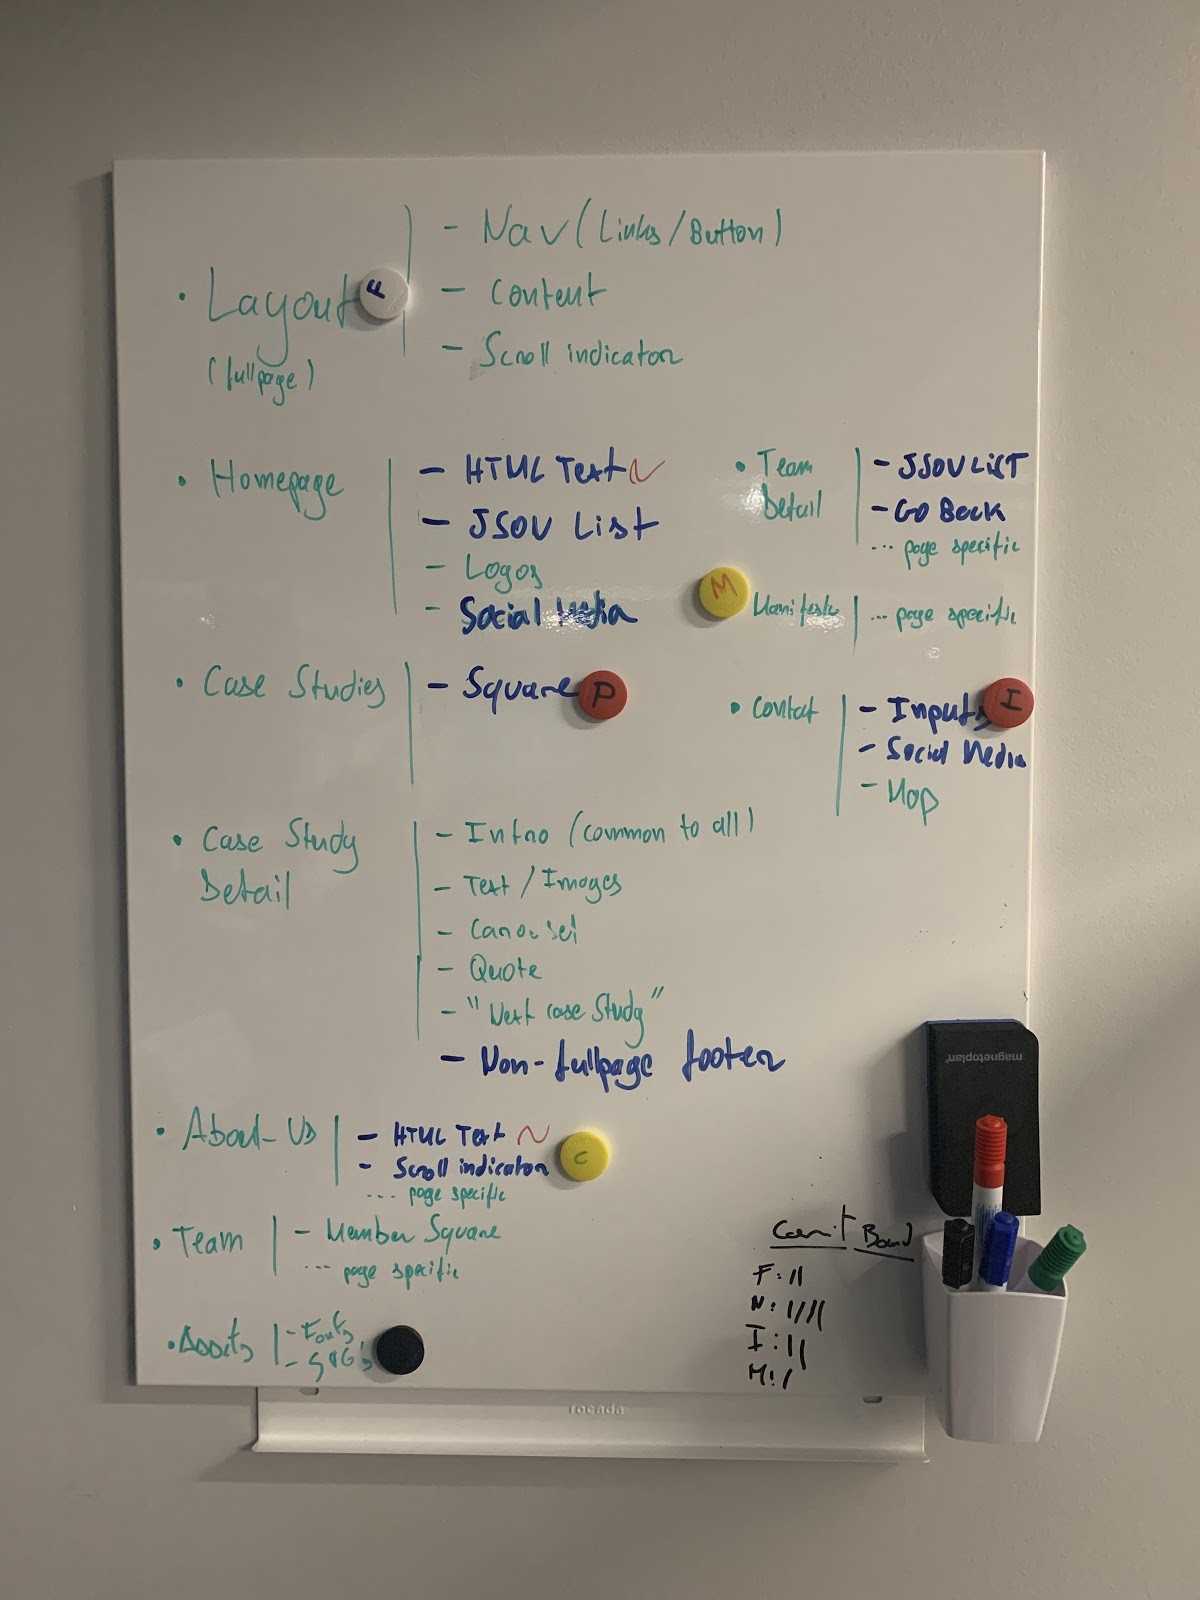 - Nav (Links/Button)
• Layout F - Content
(fullpage) - Scroll indicator
• Homepage
- HTML Text N
- JSON List
- Logos
- Social Media
• Team Detail
- JSON LIST
- GO Back
... page specific
M Manifesto
... page specific
• Case Studies - Square P
• Contact
- Inputs I
- Social Media
- Map
• Case Study
Detail
- Intro (common to all)
- Text / Images
- Carousel
- Quote
- "Next case Study"
- Non-fullpage footer
• About-Us
- HTML Text N
- Scroll indicator C
... page specific
• Team - Member Square
... page specific
• Assets - Fonts
- SVG's
magnetoplan
Commit Board
F: II
N: IIII
I: II
M: I
rocada